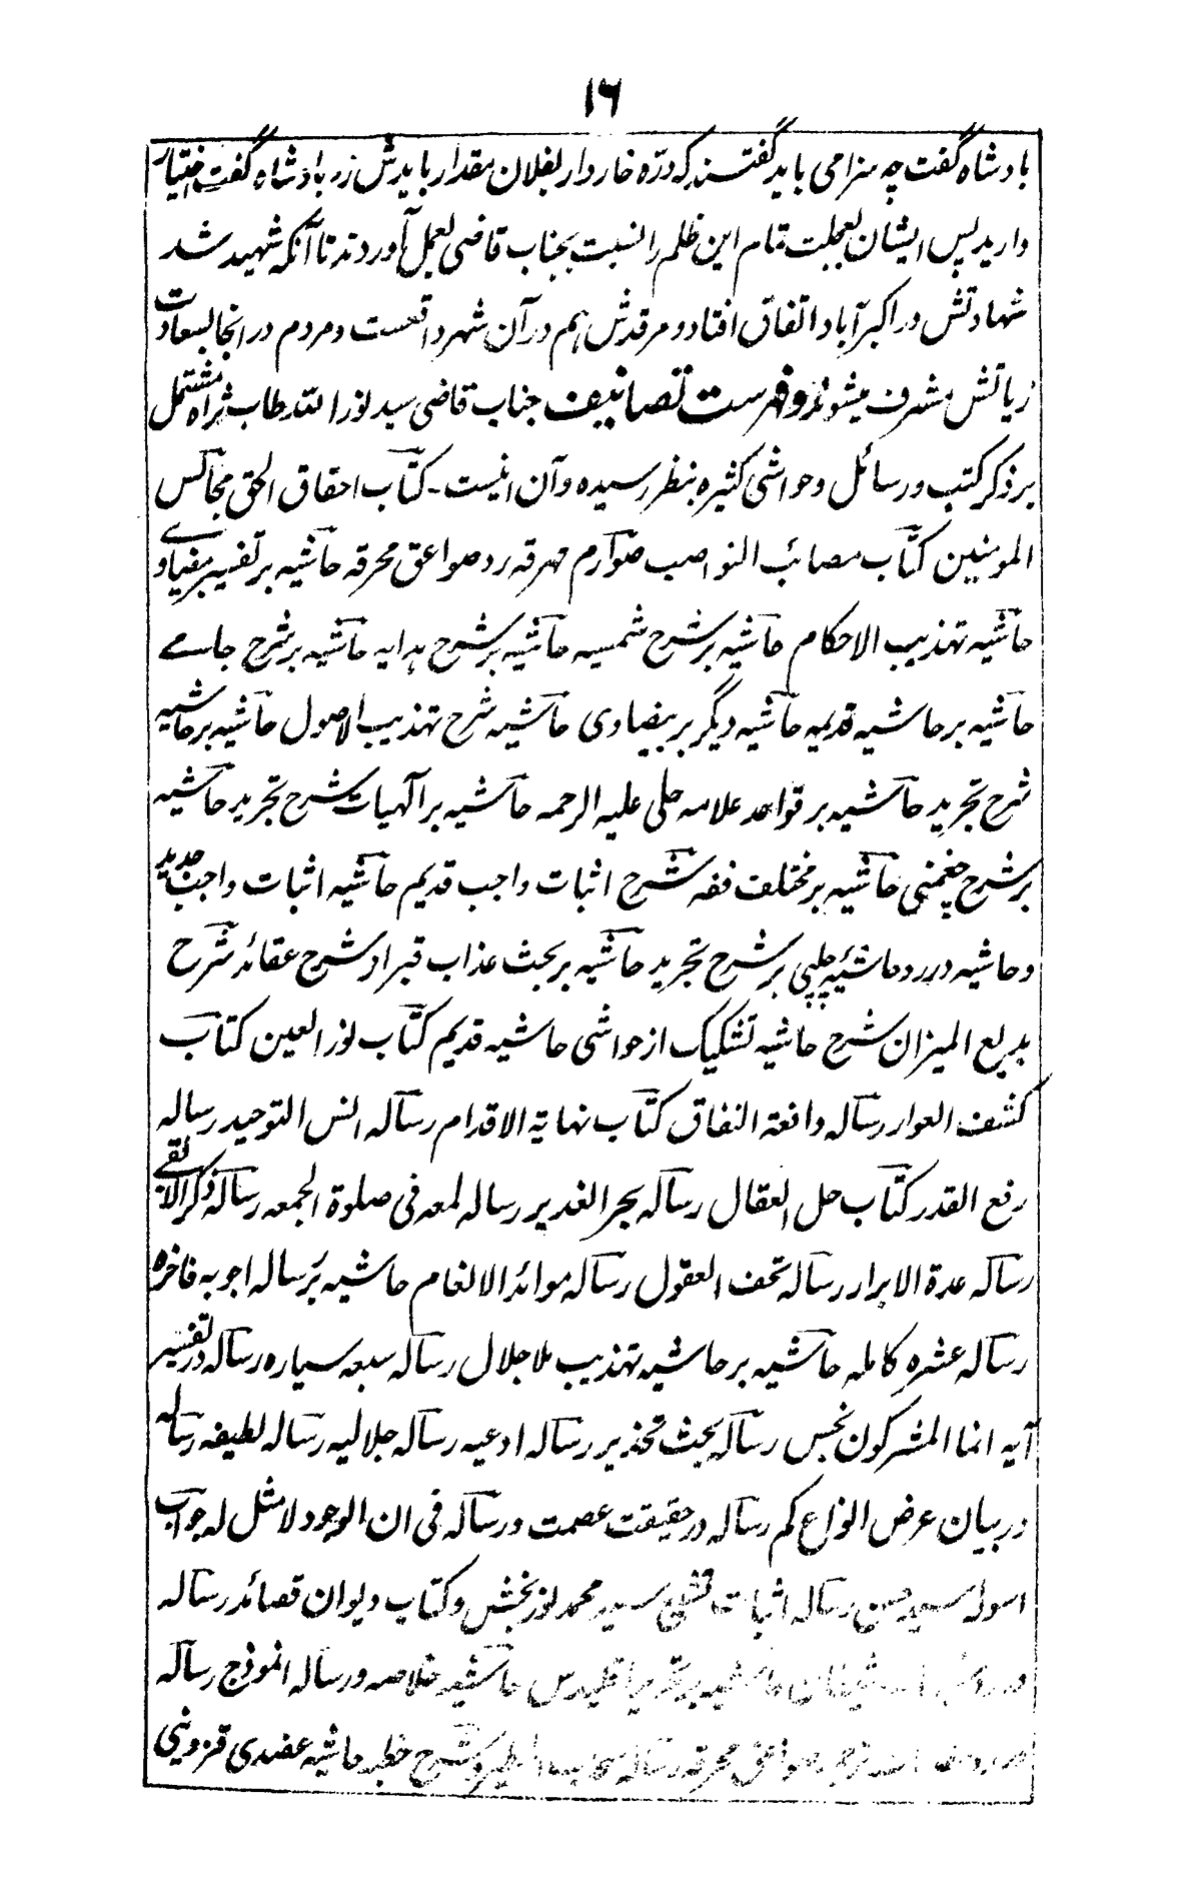 ۱۶
بادشاہ گفت چہ سزا می باید گفتند کہ درّہ خاردار بفلان مقدار بایدش زد بادشاہ گفت اختیار
دارید پس ایشان بعجلت تمام این ظلم را نسبت بجناب قاضی بعمل آوردند تا آنکہ شہید شد
شہادتش در اکبرآباد اتفاق افتاد و مرقدش ہم در آن شہر واقعست و مردم در انجا بسعادت
زیاتش مشرف میشوند و فہرست تصانیف جناب قاضی سید نور اللہ طاب ثراہ مشتمل
بر ذکر کتب و رسائل و حواشی کثیرہ بنظر رسیدہ و آن اینست ۔ کتاب احقاق الحق مجالس
المومنین کتاب مصائب النواصب صوارم مہرقہ رد صواعق محرقہ حاشیہ بر تفسیر بیضاوی و
حاشیہ تہذیب الاحکام حاشیہ بر شرح شمسیہ حاشیہ بر شرح ہدایہ حاشیہ بر شرح جامے
حاشیہ بر حاشیہ قدیمہ حاشیہ دیگر بر بیضاوی حاشیہ شرح تہذیب الاصول حاشیہ بر حاشیہ
شرح تجرید حاشیہ بر قواعد علامہ حلی علیہ الرحمہ حاشیہ بر آلہیات شرح تجرید حاشیہ
بر شرح چغمنی حاشیہ بر مختلف فقہ شرح اثبات واجب قدیم حاشیہ اثبات واجب جدید
و حاشیہ در رد حاشیۂ چلپی بر شرح تجرید حاشیہ بر بحث عذاب قبر از شرح عقائد شرح
بدیع المیزان شرح حاشیہ تشکیک از حواشی حاشیہ قدیم کتاب نور العین کتاب
کشف العوار رسالہ دافعۃ النفاق کتاب نہایۃ الاقدام رسالہ انس التوحید رسالہ
رفع القدر کتاب حل العقال رسالہ بحر الغدیر رسالہ لمعہ فی صلوۃ الجمعہ رسالہ ذکر الاتقے
رسالہ عدۃ الابرار رسالہ تحف العقول رسالہ موائد الانعام حاشیہ بر رسالہ اجوبہ فاخرہ
رسالہ عشرہ کاملہ حاشیہ بر حاشیہ تہذیب ملا جلال رسالہ سبعہ سیارہ رسالہ در تفسیر
آیہ انما المشرکون نجس رسالہ بحث تحذیر رسالہ ادعیہ رسالہ جلالیہ رسالہ لطیفہ رسالہ
در بیان عرض انواع کم رسالہ در حقیقت عصمت و رسالہ فی ان الوجود لا مثل لہ جواب
اسولہ سید حسن رسالہ اثبات تشیع سید محمد نور بخش و کتاب دیوان قصائد رسالہ
حاشیہ بر تحریر اقلیدس حاشیہ خلاصہ و رسالہ انموذج رسالہ
صواعق محرقہ رسالہ و شرح خطبہ حاشیہ عضدی قزوینی